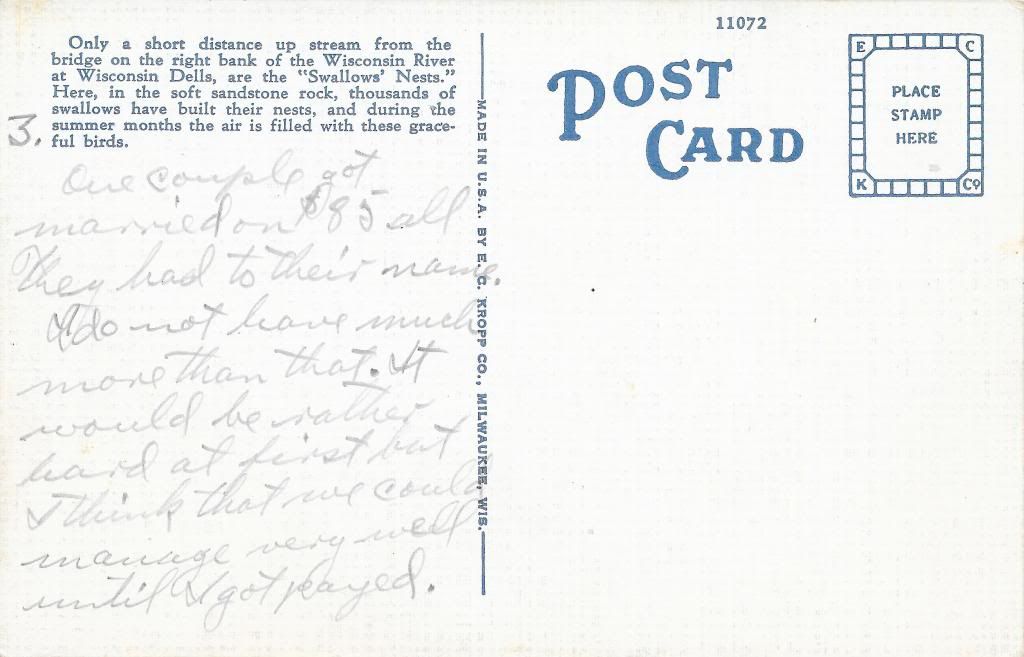 11072
Only a short distance up stream from the
bridge on the right bank of the Wisconsin River
at Wisconsin Dells, are the "Swallows' Nests."
Here, in the soft sandstone rock, thousands of
swallows have built their nests, and during the
summer months the air is filled with these grace-
ful birds.
3.
One couple got
married on $85 all
They had to their name.
I do not have much
more than that. It
would be rather
hard at first but
I think that we could
manage very well
until I got payed.
MADE IN U.S.A. BY E. C. KROPP CO., MILWAUKEE, WIS.
POST
CARD
E C
PLACE
STAMP
HERE
K Co